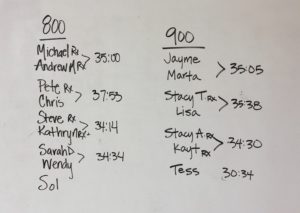 800
Michael Rx
Andrew M Rx > 35:00
Pete Rx
Chris > 37:53
Steve Rx
Kathryn Rx > 34:14
Sarah D
Wendy > 34:34
Sol
900
Jayme
Marta > 35:05
Stacy T. Rx
Lisa > 35:38
Stacy A. Rx
Kay T Rx > 34:30
Tess 30:34